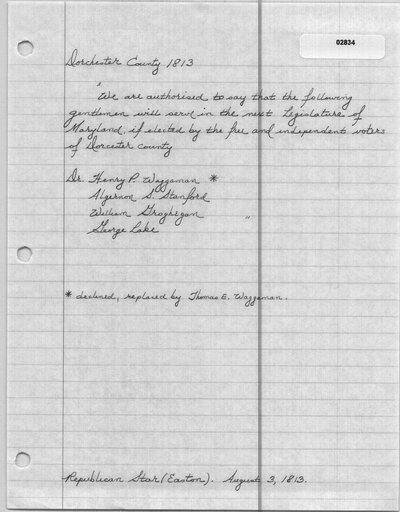 02834
Dorchester County 1813
"We are authorised to say that the following
gentlemen will serve in the next Legislature of
Maryland, if elected by the free and independent voters
of Dorcester county
Dr. Henry P. Waggaman *
Algernon S. Stanford
William Groghegan "
George Lake
* declined, replaced by Thomas E. Waggaman.
Republican Star (Easton). August 3, 1813.